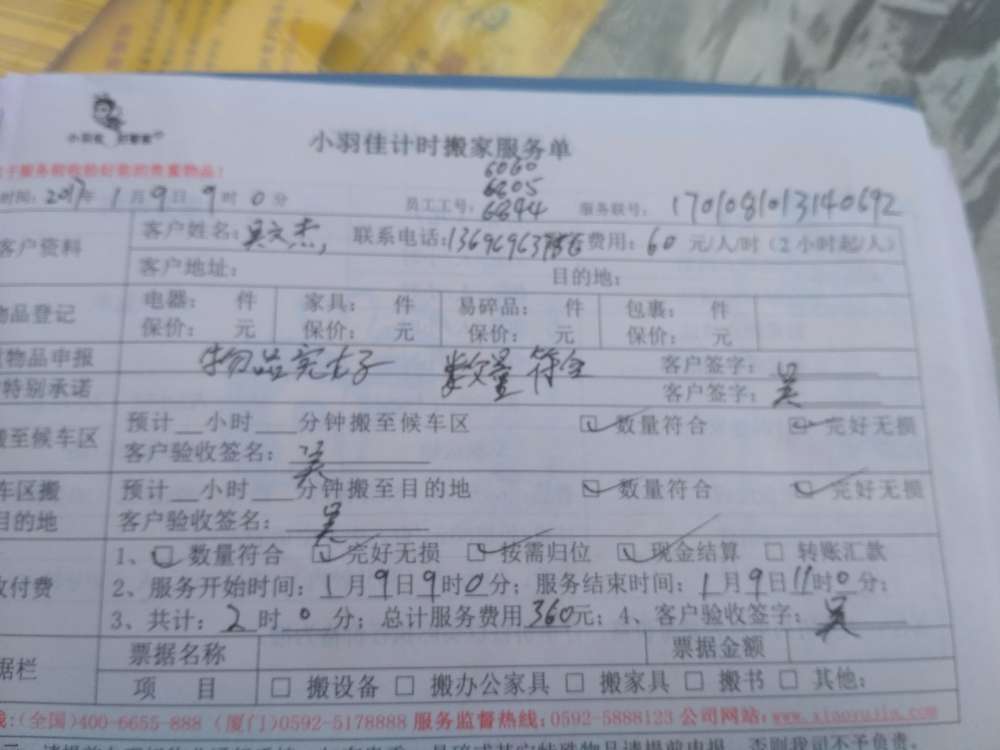 小羽佳计时搬家服务单
服务验收检好您的贵重物品!
时间: 2017年 1月9日9时0分
6060
6205
员工工号: 6844 服务联号: 1701081013140692
客户资料 客户姓名: 吴文杰, 联系电话: 费用: 60 元/人/时 (2小时起/人)
客户地址: 目的地:
物品登记 电器: 件 家具: 件 易碎品: 件 包裹: 件
保价: 元 保价: 元 保价: 元 保价: 元
物品申报 物品完好 数量符合 客户签字:
特别承诺 客户签字: 吴
搬至候车区 预计__小时___分钟搬至候车区 ☑数量符合 ☑完好无损
客户验收签名: 吴
车区搬 预计__小时___分钟搬至目的地 ☑数量符合 ☑完好无损
目的地 客户验收签名: 吴
1、☑数量符合 ☑完好无损 ☑按需归位 ☑现金结算 □ 转账汇款
收付费 2、服务开始时间: 1月9日9时0分; 服务结束时间: 1月9日11时0分;
3、共计: 2时0分; 总计服务费用360元; 4、客户验收签字: 吴
据栏 票据名称 票据金额
项 目 □ 搬设备 □ 搬办公家具 □ 搬家具 □ 搬书 □ 其他:
线:(全国)400-6655-888 (厦门)0592-5178888 服务监督热线:0592-5888123 公司网站:www.xiaoyujia.com